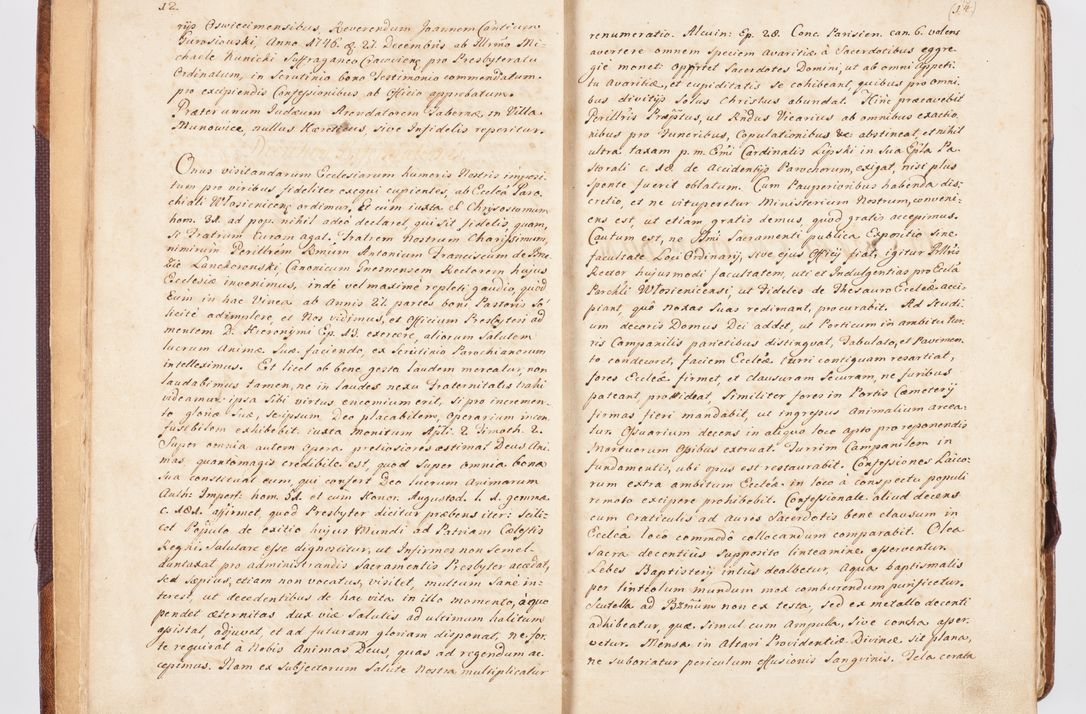 12.
rijs Oswiecimensibus, Reverendum Joannem Cantium
Gurosiowski, Anno 1746. & 27. Decembris ab Illrmo Mi-
chaele Kunicki Suffraganeo Cracovien: pro Presbyteratu
Ordinatum, in Scrutinio bono Testimonio commendatum.
pro excipiendis Confessionibus ab Officio approbatum.
Præter unum Judæum Arendatorem Tabernæ, in Villa
Munowice, nullus Hæreticus, sive Infidelis reperitur.
Onus visitandarum Ecclesiarum humeris Nostris imposi-
tum pro viribus fideliter exequi cupientes, ab Ecclea Paro-
chiali Wlosienicen: ordimur. Et cum iuxta S. Chrysostomum
hom. 32. ad pop. nihil adeo declaret, qui sit fidelis quam,
si Fratrum curam agat. Fratrem Nostrum Charissimum,
nimirum Perillrem Rndum Antonium Franciscum de Brze-
zie Lanckoronski, Canonicum Gnesnensem Rectorem hujus
Ecclesiæ invenimus, inde vel maxime repleti gaudio, quod
Eum in hac Vinea ab Annis 27. partes boni Pastoris So-
licite adimplere, et Nos vidimus, et Officium Presbyteri ad
mentem D. Hieronymi Ep. 13. exercere, aliorum Salutem
lucrum Animæ Suæ faciendo, ex Scrutinio Parochianorum
intelleximus. Et licet ob bene gesta laudem mereatur, non
laudabimus tamen, ne in laudes nexu Fraternitatis trahi
videamur: ipsa Sibi virtus encomium erit, si pro incremen-
to gloriæ Suæ, seipsum Deo placabilem, operarium incon-
fusibilem exhibebit iuxta monitum Apli: 2. Timoth. 2.
Super omnia autem opera pretiosiores æstimat Deus Ani-
mas, quantomagis credibile est, quod Super omnia bona
sua constituat eum, qui confert Deo lucrum Animarum
Auth: Imperf: hom. 51. et cum Honor. Augustod. l. 1. gemmæ
c. 181. affirmet, quod Presbyter dicitur præbens iter: Scili-
cet Populo de exitio hujus Mundi ad Patriam Cælestis
Regni, Salutare esse dignoscitur, ut Infirmos non Semel-
duntaxat pro administrandis Sacramentis Presbyter accedat,
sed sæpius, etiam non vocatus, visitet, multum Sane in-
terest, ut decedentibus de hac vita in illo momento, a quo
pendet æternitas dux viæ Salutis ad ultimum halitum
assistat, adjuvet, et ad futuram gloriam disponat, ne for-
te requirat à Nobis Animas Deus, quas ad regendum ac-
cepimus. Nam ex Subjectorum Salute Nostra multiplicatur
renumeratio. Alcuin: Ep. 28. Conc. Parisien. can. 6. volens
avertere omnem Speciem Avaritiæ à Sacerdotibus egre-
gie monet: oportet Sacerdotes Domini, ut ab omni appeti-
tu Avaritiæ, et cupiditatis se cohibeant, quibus pro omni-
bus divitijs Solus Christus abundat. Hinc præcavebit
Perillris Præptus, ut Rndus Vicarius ab omnibus exactio-
nibus pro Funeribus, Copulationibus &c: abstineat, et nihil
ultra taxam p. m. Emi Cardinalis Lipski in Sua Epla Pa-
storali c. 12. de Accidentijs Parochorum, exigat, nisi plus
sponte fuerit oblatum. Cum Pauperioribus habenda dis-
cretio, et ne vituperetur Ministerium Nostrum, conveni-
ens est, ut etiam gratis demus, quod gratis accepimus.
Cautum est, ne Ssmi Sacramenti publica Expositio sine
facultate Loci Ordinarij, sive ejus Officij fiat, igitur Pillris
Rector hujusmodi facultatem, uti et Indulgentias pro Ecclâ
Parchli Wlosienicensi, ut Fideles de Thesauro Eccleæ acci-
piant, quô noxas suas redimant, procurabit. Ad Studi-
um decoris Domus Dei addet, ut Porticum in ambitu Tur-
ris Campanilis parietibus distinguat, Tabulato, et Pavimen-
to condecoret, faciem Eccleæ turri contiguam resartiat,
fores Eccleæ firmet, et clausuram securam, ne furibus
pateant, provideat, Similiter fores in Portis Cæmeterij
firmas fieri mandabit, ut ingressus Animalium arcea-
tur. Ossuarium decens in aliquo loco apto pro reponendis
Mortuorum Ossibus extruat. Turrim Campanilem in
fundamentis, ubi opus est restaurabit. Confessiones Laico-
rum extra ambitum Eccleæ in loco à conspectu populi
remoto excipere prohibebit. Confessionale aliud decens
cum craticulis ad aures Sacerdotis bene clausum in
Ecclea loco commodo collocandum comparabit. Olea
Sacra decentius supposito linteamine asserventur.
Lebes Baptisterij intus dealbetur, Aqua baptismalis
per linteolum mundum mox comburendum purificetur.
Scutella ad Bsmum non ex testa, sed ex metallo decenti
adhibeatur, quæ simul cum Ampula, sive concha asser-
vetur. Mensa in Altari Providentiæ Divinæ sit plana,
ne suboriatur periculum effusionis Sanguinis. Tela cerata